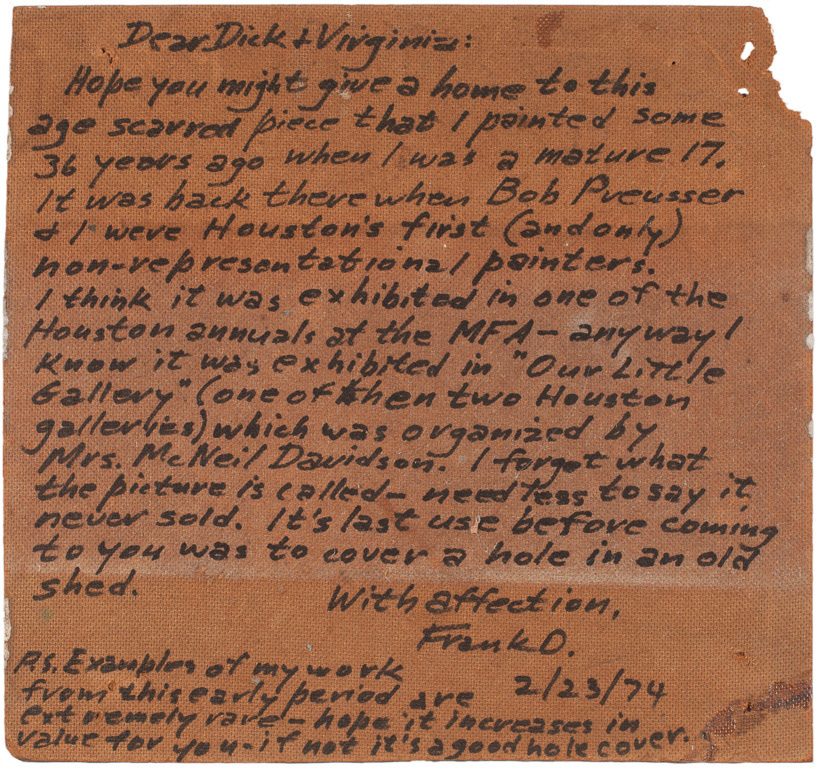 Dear Dick & Virginia:
Hope you might give a home to this
age scarred piece that I painted some
36 years ago when I was a mature 17.
It was back there when Bob Preusser
& I were Houston's first (and only)
non-representational painters.
I think it was exhibited in one of the
Houston annuals at the MFA - anyway I
know it was exhibited in "Our Little
Gallery" (one of then two Houston
galleries) which was organized by
Mrs. McNeil Davidson. I forgot what
the picture is called - needless to say it
never sold. It's last use before coming
to you was to cover a hole in an old
shed.
With affection,
Frank D.
2/23/74
P.S. Examples of my work
from this early period are
extremely rare - hope it increases in
value for you - if not it's a good hole cover.